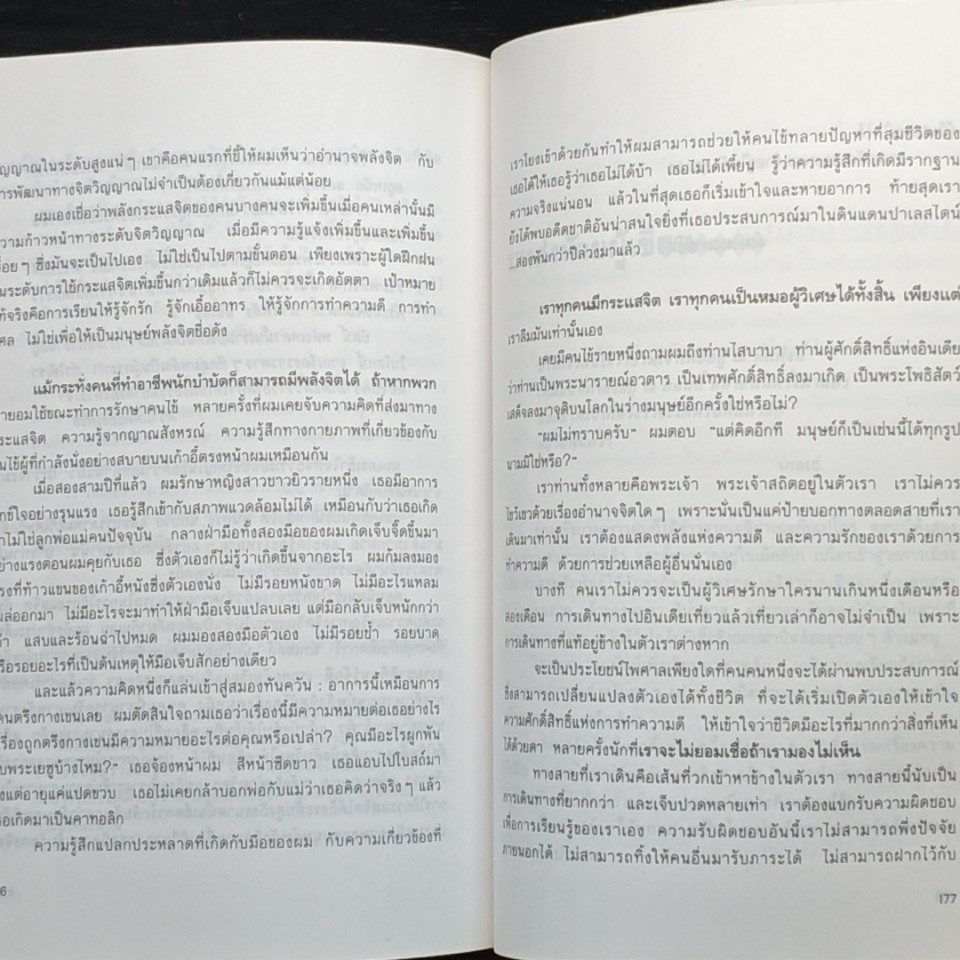 ญญาณในระดับสูงแน่ๆ เขาคือคนแรกที่ชี้ให้ผมเห็นว่าอำนาจพลังจิต กับ
การพัฒนาทางจิตวิญญาณไม่จำเป็นต้องเกี่ยวกันแม้แต่น้อย
ผมเองเชื่อว่าพลังกระแสจิตของคนบางคนจะเพิ่มขึ้นเมื่อคนเหล่านั้นมี
ความก้าวหน้าทางระดับจิตวิญญาณ เมื่อมีความรู้แจ้งเพิ่มขึ้นและเพิ่มขึ้น
รื่อยๆ ซึ่งมันจะเป็นไปเอง ไม่ใช่เป็นไปตามขั้นตอน เพียงเพราะผู้ใดฝึกฝน
นระดับการใช้กระแสจิตเพิ่มขึ้นกว่าเดิมแล้วก็ไม่ควรจะเกิดอัตตา เป้าหมาย
ท้จริงคือการเรียนให้รู้จักรัก รู้จักเอื้ออาทร ให้รู้จักการทำความดี การทำ
ศล ไม่ใช่เพื่อให้เป็นมนุษย์พลังจิตชื่อดัง
แม้กระทั่งคนที่ทำอาชีพนักบำบัดก็สามารถมีพลังจิตได้ ถ้าหากพวก
ายอมใช้ขณะทำการรักษาคนไข้ หลายครั้งที่ผมเคยจับความคิดที่ส่งมาทาง
ระแสจิต ความรู้จากญาณสังหรณ์ ความรู้สึกทางกายภาพที่เกี่ยวข้องกับ
นไข้ผู้ที่กำลังนั่งอย่างสบายบนเก้าอี้ตรงหน้าผมเหมือนกัน
เมื่อสองสามปีที่แล้ว ผมรักษาหญิงสาวชาวยิวรายหนึ่ง เธอมีอาการ
ุกข์ใจอย่างรุนแรง เธอรู้สึกเข้ากับสภาพแวดล้อมไม่ได้ เหมือนกับว่าเธอเกิด
าไม่ใช่ลูกพ่อแม่คนปัจจุบัน กลางฝ่ามือทั้งสองมือของผมเกิดเจ็บจี๊ดขึ้นมา
ย่างแรงตอนผมคุยกับเธอ ซึ่งตัวเองก็ไม่รู้ว่าเกิดขึ้นจากอะไร ผมก้มลงมอง
รงที่ท้าวแขนของเก้าอี้หนังซึ่งตัวเองนั่ง ไม่มีรอยหนังขาด ไม่มีอะไรแหลม
ผล่ออกมา ไม่มีอะไรจะมาทำให้ฝ่ามือเจ็บแปลบเลย แต่มือกลับเจ็บหนักกว่า
ก่า แสบและร้อนฉ่าไปหมด ผมมองสองมือตัวเอง ไม่มีรอยช้ำ รอยบาด
รือรอยอะไรที่เป็นต้นเหตุให้มือเจ็บสักอย่างเดียว
และแล้วความคิดหนึ่งก็แล่นเข้าสู่สมองทันควัน : อาการนี้เหมือนการ
คนตรึงกางเขนเลย ผมตัดสินใจถามเธอว่าเรื่องนี้มีความหมายต่อเธออย่างไร
เรื่องถูกตรึงกางเขนมีความหมายอะไรต่อคุณหรือเปล่า? คุณมีอะไรผูกพัน
ับพระเยซูบ้างไหม?" เธอจ้องหน้าผม สีหน้าซีดขาว เธอแอบไปโบสถ์มา
ั้งแต่อายุแค่แปดขวบ เธอไม่เคยกล้าบอกพ่อกับแม่ว่าเธอคิดว่าจริงๆ แล้ว
ธอเกิดมาเป็นคาทอลิก
ความรู้สึกแปลกประหลาดที่เกิดกับมือของผม กับความเกี่ยวข้องที่
6
เราโยงเข้าด้วยกันทำให้ผมสามารถช่วยให้คนไข้ทลายปัญหาที่สุมชีวิตของ
เธอได้ให้เธอรู้ว่าเธอไม่ได้บ้า เธอไม่ได้เพี้ยน รู้ว่าความรู้สึกที่เกิดมีรากฐาน
ความจริงแน่นอน แล้วในที่สุดเธอก็เริ่มเข้าใจและหายอาการ ท้ายสุดเรา
ยังได้พบอดีตชาติอันน่าสนใจยิ่งที่เธอประสบการณ์มาในดินแดนปาเลสไตน์
...สองพันกว่าปีล่วงมาแล้ว
เราทุกคนมีกระแสจิต เราทุกคนเป็นหมอผู้วิเศษได้ทั้งสิ้น เพียงแต่
เราลืมมันเท่านั้นเอง
เคยมีคนไข้รายหนึ่งถามผมถึงท่านไสบาบา ท่านผู้ศักดิ์สิทธิ์แห่งอินเดีย
ว่าท่านเป็นพระนารายณ์อวตาร เป็นเทพศักดิ์สิทธิ์ลงมาเกิด เป็นพระโพธิสัตว์
เสด็จลงมาจุติบนโลกในร่างมนุษย์อีกครั้งใช่หรือไม่?
"ผมไม่ทราบครับ" ผมตอบ "แต่คิดอีกที มนุษย์ก็เป็นเช่นนี้ได้ทุกรูป
นามมิใช่หรือ?"
เราท่านทั้งหลายคือพระเจ้า พระเจ้าสถิตอยู่ในตัวเรา เราไม่ควร
ไขว้เขวด้วยเรื่องอำนาจจิตใดๆ เพราะนั่นเป็นแค่ป้ายบอกทางตลอดสายที่เรา
เดินมาเท่านั้น เราต้องแสดงพลังแห่งความดี และความรักของเราด้วยการ
ทำความดี ด้วยการช่วยเหลือผู้อื่นนั่นเอง
บางที คนเราไม่ควรจะเป็นผู้วิเศษรักษาใครนานเกินหนึ่งเดือนหรือ
สองเดือน การเดินทางไปอินเดียเที่ยวแล้วเที่ยวเล่าก็อาจไม่จำเป็น เพราะ
การเดินทางที่แท้อยู่ข้างในตัวเราต่างหาก
จะเป็นประโยชน์ไพศาลเพียงใดที่คนคนหนึ่งจะได้ผ่านพบประสบการณ์
ซึ่งสามารถเปลี่ยนแปลงตัวเองได้ทั้งชีวิต ที่จะได้เริ่มเปิดตัวเองให้เข้าใจ
ความศักดิ์สิทธิ์แห่งการทำความดี ให้เข้าใจว่าชีวิตมีอะไรที่มากกว่าสิ่งที่เห็น
ได้ด้วยตา หลายครั้งนักที่เราจะไม่ยอมเชื่อถ้าเรามองไม่เห็น
ทางสายที่เราเดินคือเส้นที่วกเข้าหาข้างในตัวเรา ทางสายนี้นับเป็น
การเดินทางที่ยากกว่า และเจ็บปวดหลายเท่า เราต้องแบกรับความผิดชอบ
เพื่อการเรียนรู้ของเราเอง ความรับผิดชอบอันนี้เราไม่สามารถพึ่งปัจจัย
ภายนอกได้ ไม่สามารถทิ้งให้คนอื่นมารับภาระได้ ไม่สามารถฝากไว้กับ
177